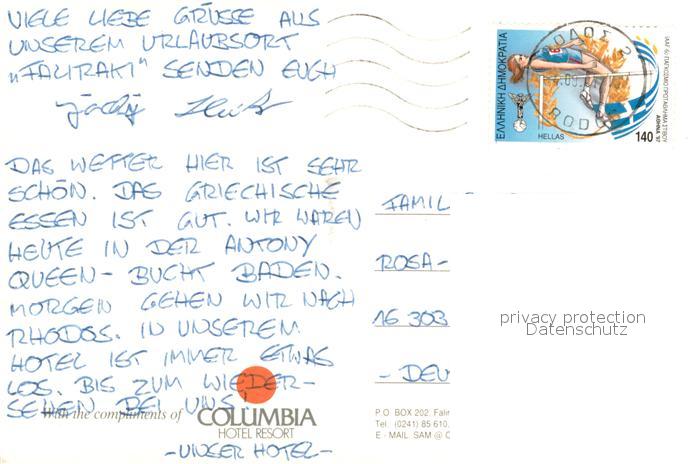 VIELE LIEBE GRÜSSE AUS
UNSEREM URLAUBSORT
„FALIRAKI" SENDEN EUCH
DAS WETTER HIER IST SEHR
SCHÖN. DAS GRIECHISCHE
ESSEN IST GUT. WIR WAREN
HEUTE IN DER ANTONY
QUEEN-BUCHT BADEN.
MORGEN GEHEN WIR NACH
RHODOS. IN UNSEREM
HOTEL IST IMMER ETWAS
LOS. BIS ZUM WIEDER-
SEHEN BEI UNS!
With the compliments of
COLUMBIA
HOTEL RESORT
-UNSER HOTEL-
ΕΛΛΗΝΙΚΗ ΔΗΜΟΚΡΑΤΙΑ
HELLAS
140
FAMIL
ROSA-
16 303
- DEU
privacy protection
Datenschutz
P.O. BOX 202. Falir
Tel. (0241) 85 610,
E - MAIL. SAM @ C